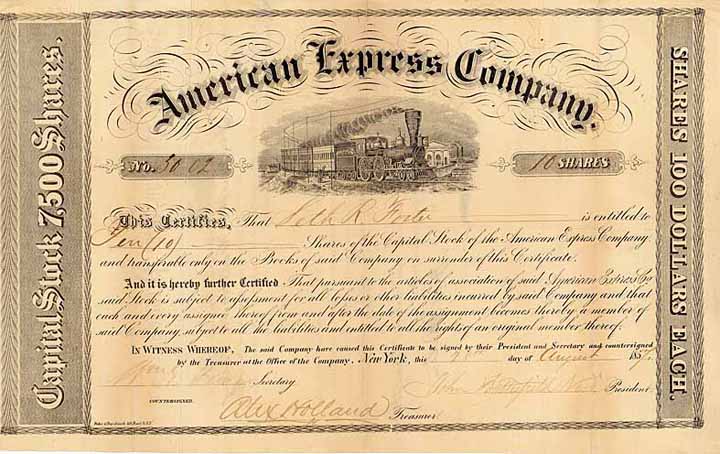 American Express Company.
Capital Stock 7,500 Shares.
SHARES 100 DOLLARS EACH.
No. 3002
10 SHARES
This Certifies, That Seth R. Foster is entitled to
Ten (10) Shares of the Capital Stock of the American Express Company
and transferable only on the Books of said Company on surrender of this Certificate.
And it is hereby further Certified That pursuant to the articles of association of said American Express Co
said Stock is subject to assessment for all losses or other liabilities incurred by said Company and that
each and every assignee thereof from and after the date of the assignment becomes thereby a member of
said Company, subject to all the liabilities and entitled to all the rights of an original member thereof.
IN WITNESS WHEREOF, The said Company have caused this Certificate to be signed by their President and Secretary and countersigned
by the Treasurer at the Office of the Company, New York, this day of August 185
Secretary
John Butterfield President.
COUNTERSIGNED.
Alex Holland Treasurer.